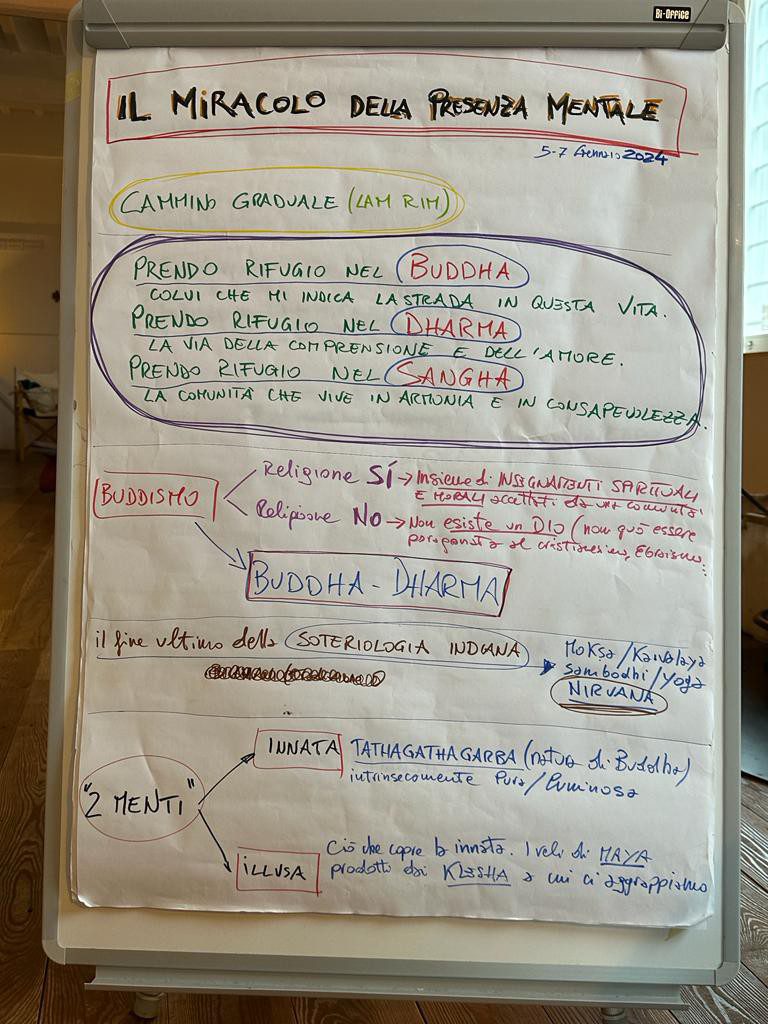 Bi-Office
IL MIRACOLO DELLA PRESENZA MENTALE
5-7 Gennaio 2024
CAMMINO GRADUALE (LAM RIM)
PRENDO RIFUGIO NEL BUDDHA
COLUI CHE MI INDICA LA STRADA IN QUESTA VITA.
PRENDO RIFUGIO NEL DHARMA
LA VIA DELLA COMPRENSIONE E DELL'AMORE.
PRENDO RIFUGIO NEL SANGHA
LA COMUNITÀ CHE VIVE IN ARMONIA E IN CONSAPEVOLEZZA.
BUDDISMO
Religione SÍ → Insieme di INSEGNAMENTI SPIRITUALI
E MORALI accettati da una comunità.
Religione NO → Non esiste un DIO (non può essere
paragonato al cristianesimo, Ebraismo...
BUDDHA - DHARMA
il fine ultimo della SOTERIOLOGIA INDIANA
Moksa/Kaivalaya
Sambodhi/Yoga
NIRVANA
"2 MENTI"
INNATA TATHAGATHAGARBA (natura di Buddha)
intrinsecamente Pura/Luminosa
ILLUSA Ciò che copre la innata. I veli di MAYA
prodotto dai KLESHA a cui ci aggrappiamo